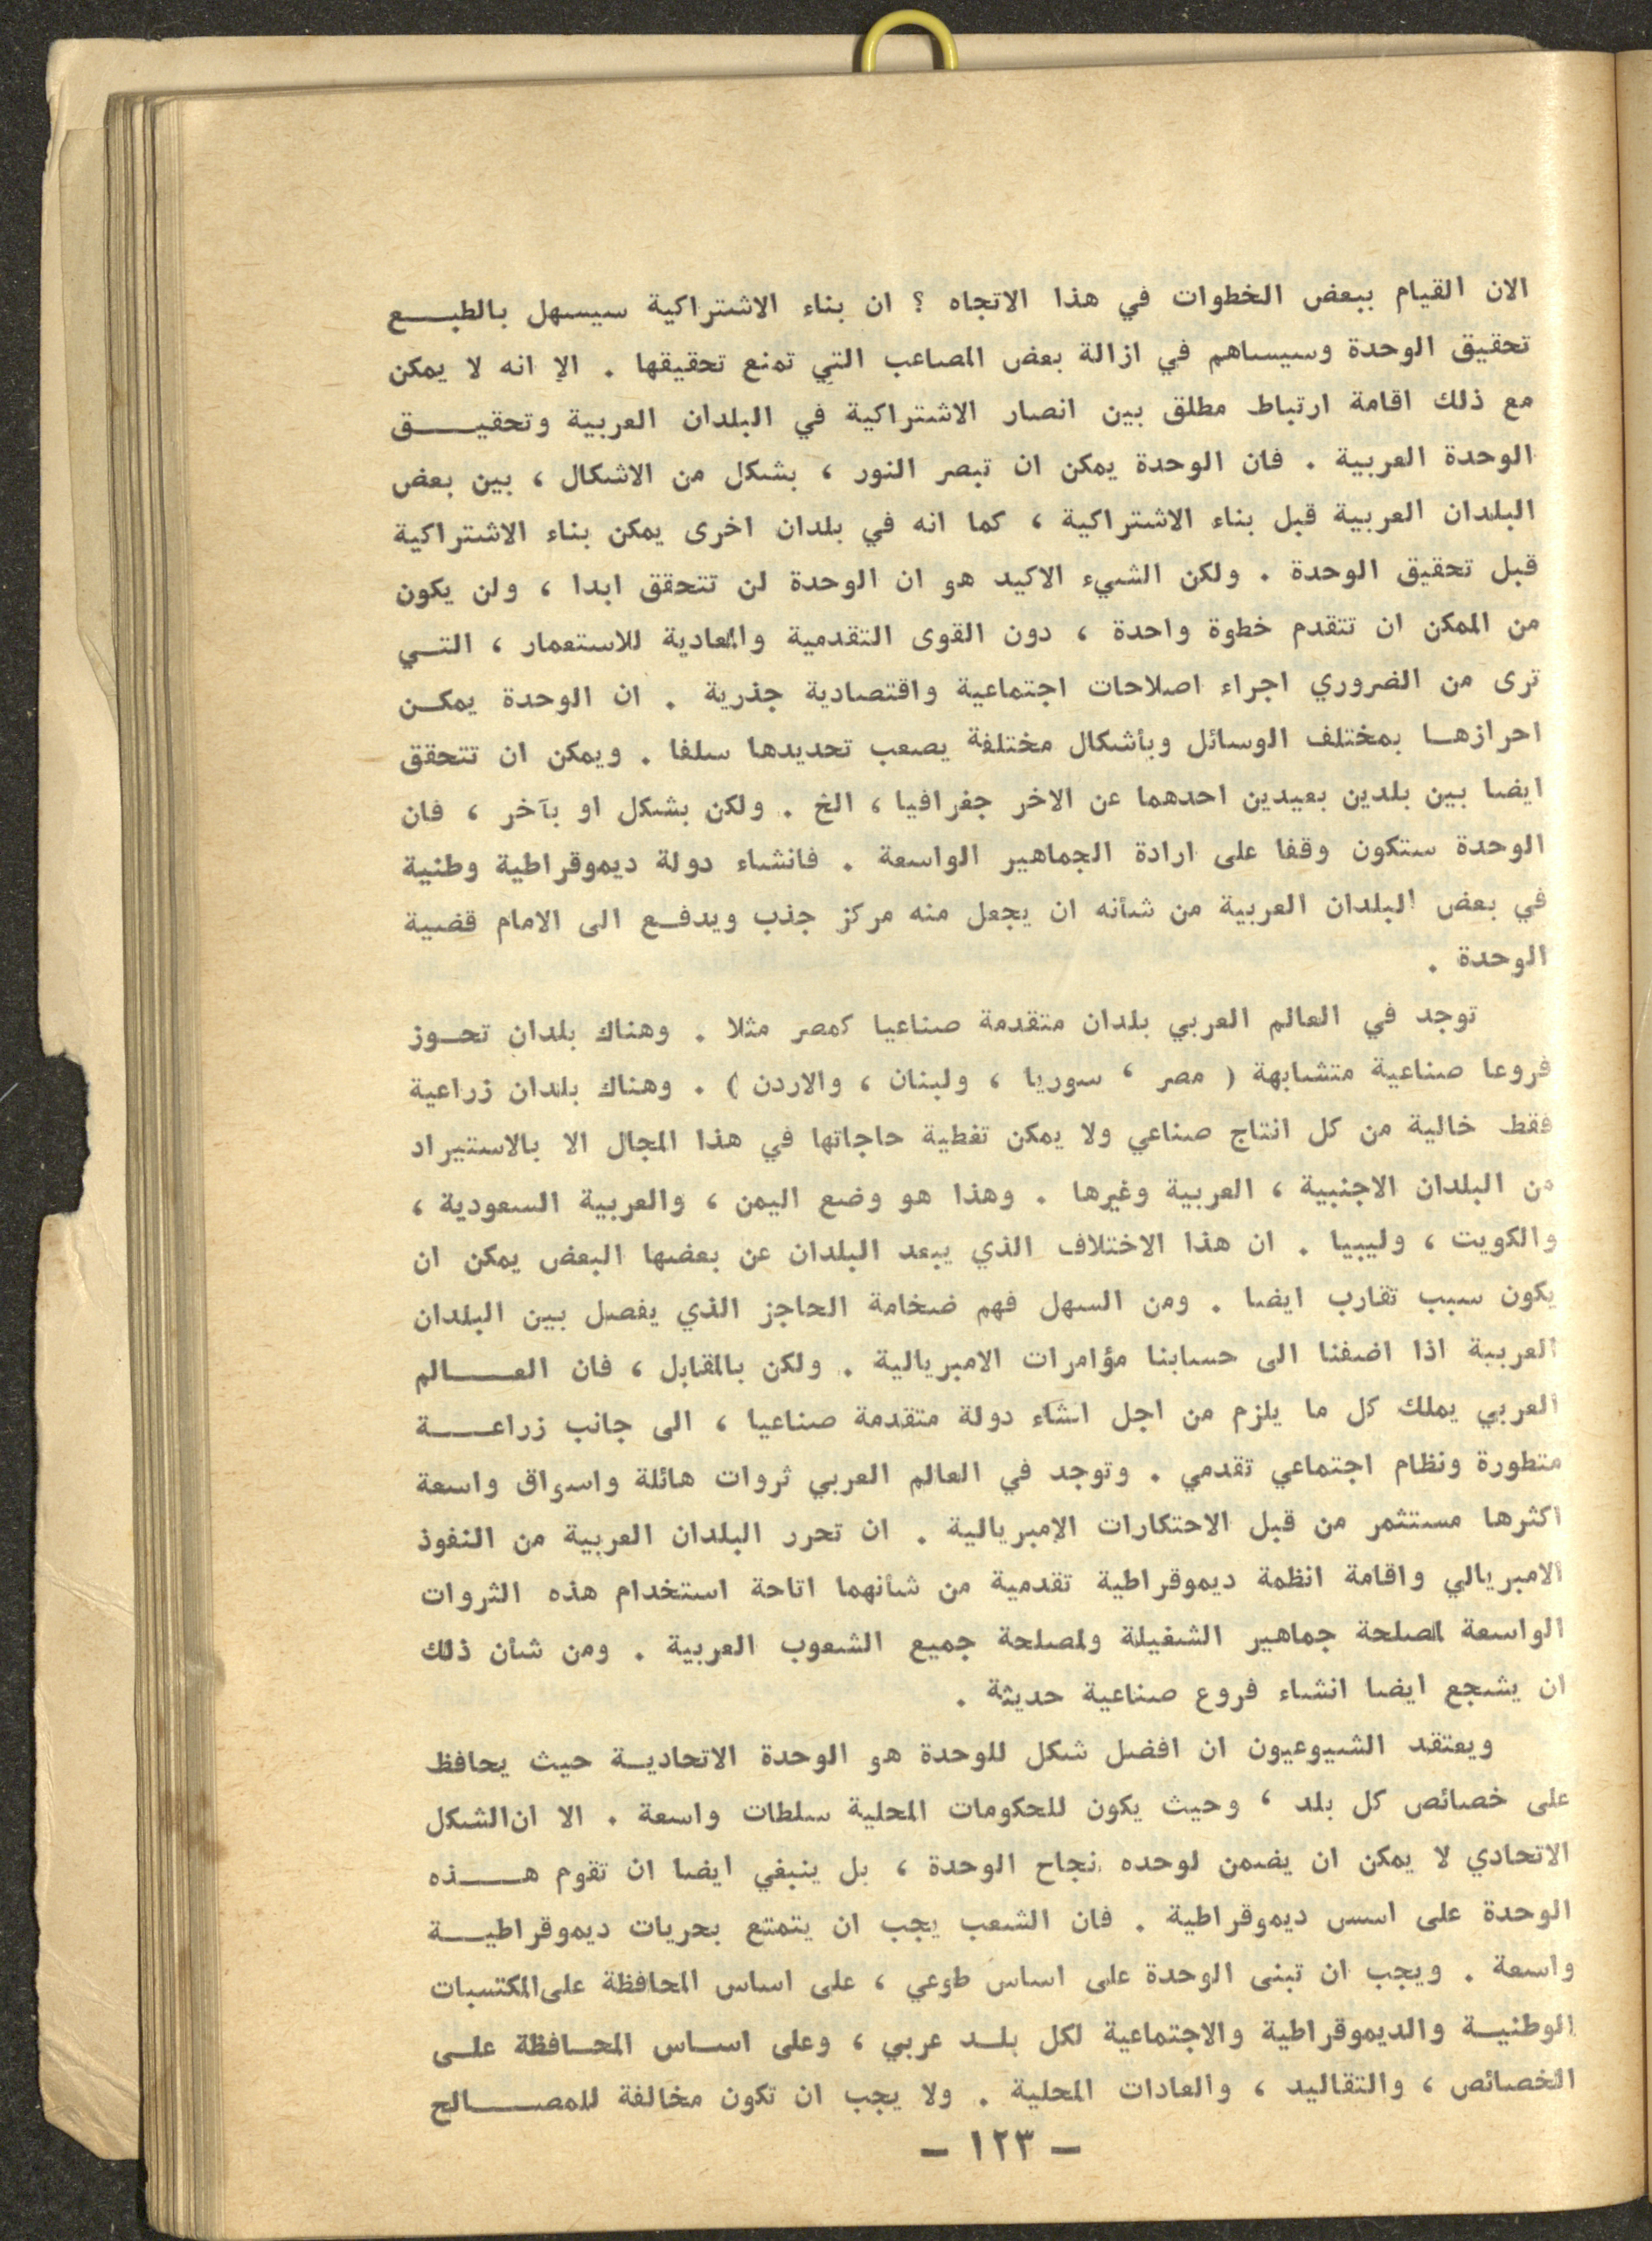 الان القيام ببعض الخطوات في هذا الاتجاه ؟ ان بناء الاشتراكية سيسهل بالطبـــع
تحقيق الوحدة وسيساهم في ازالة بعض المصاعب التي تمنع تحقيقها . الا انه لا يمكن
مع ذلك اقامة ارتباط مطلق بين انصار الاشتراكية في البلدان العربية وتحقيـــق
الوحدة العربية . فان الوحدة يمكن ان تبصر النور ، بشكل من الاشكال ، بين بعض
البلدان العربية قبل بناء الاشتراكية ، كما انه في بلدان اخرى يمكن بناء الاشتراكية
قبل تحقيق الوحدة . ولكن الشيء الاكيد هو ان الوحدة لن تتحقق ابدا ، ولن يكون
من الممكن ان تتقدم خطوة واحدة ، دون القوى التقدمية والمعادية للاستعمار ، التـي
ترى من الضروري اجراء اصلاحات اجتماعية واقتصادية جذرية . ان الوحدة يمكـن
احرازهـا بمختلف الوسائل وبأشكال مختلفة يصعب تحديدها سلفا . ويمكن ان تتحقق
ايضا بين بلدين بعيدين احدهما عن الاخر جغرافيا ، الخ . ولكن بشكل او بآخر ، فان
الوحدة ستكون وقفا على ارادة الجماهير الواسعة . فانشاء دولة ديموقراطية وطنية
في بعض البلدان العربية من شأنه ان يجعل منه مركز جذب ويدفـع الى الامام قضية
الوحدة .
توجد في العالم العربي بلدان متقدمة صناعيا كمصر مثلا . وهناك بلدان تحـوز
فروعا صناعية متشابهة ( مصر ، سوريا ، ولبنان ، والاردن ) . وهناك بلدان زراعية
فقط خالية من كل انتاج صناعي ولا يمكن تغطية حاجاتها في هذا المجال الا بالاستيراد
من البلدان الاجنبية ، العربية وغيرها . وهذا هو وضع اليمن ، والعربية السعودية ،
والكويت ، وليبيا . ان هذا الاختلاف الذي يبعد البلدان عن بعضها البعض يمكن ان
يكون سبب تقارب ايضا . ومن السهل فهم ضخامة الحاجز الذي يفصل بين البلدان
العربية اذا اضفنا الى حسابنا مؤامرات الامبريالية . ولكن بالمقابل ، فان العـــالم
العربي يملك كل ما يلزم من اجل انشاء دولة متقدمة صناعيا ، الى جانب زراعـــة
متطورة ونظام اجتماعي تقدمي . وتوجد في العالم العربي ثروات هائلة واسواق واسعة
اكثرها مستثمر من قبل الاحتكارات الامبريالية . ان تحرر البلدان العربية من النفوذ
الامبريالي واقامة انظمة ديموقراطية تقدمية من شأنهما اتاحة استخدام هذه الثروات
الواسعة لمصلحة جماهير الشغيلة ولمصلحة جميع الشعوب العربية . ومن شأن ذلك
ان يشجع ايضا انشاء فروع صناعية حديثة .
ويعتقد الشيوعيون ان افضل شكل للوحدة هو الوحدة الاتحاديـة حيث يحافظ
على خصائص كل بلد ، وحيث يكون للحكومات المحلية سلطات واسعة . الا ان الشكل
الاتحادي لا يمكن ان يضمن لوحده نجاح الوحدة ، بل ينبغي ايضا ان تقوم هـــذه
الوحدة على اسس ديموقراطية . فان الشعب يجب ان يتمتع بحريات ديموقراطيـــة
واسعة . ويجب ان تبنى الوحدة على اساس طوعي ، على اساس المحافظة على المكتسبات
الوطنيـة والديموقراطية والاجتماعية لكل بلـد عربي ، وعلى اسـاس المحـافظة علـى
الخصائص ، والتقاليد ، والعادات المحلية . ولا يجب ان تكون مخالفة للمصـــالح
— ١٢٣ —